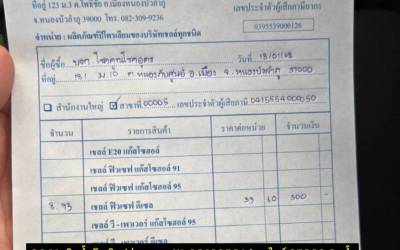 ที่อยู่ 123 ม.3 ต.โพธิ์ชัย อ.เมืองหนองบัวลำภู
จ.หนองบัวลำภู 39000 โทร. 082-309-9236
เลขประจำตัวผู้เสียภาษีอากร
0395539000126
จำหน่าย : ผลิตภัณฑ์ปิโตรเลียมของบริษัทเชลล์ทุกชนิด
วันที่ 18/01/68
ชื่อผู้ซื้อ บจก. โชคคูณโชคอุดร
ที่อยู่ 181 ม.10 ต.หนองภัยศูนย์ อ.เมือง จ.หนองบัวลำภู 39000
สำนักงานใหญ่ สาขาที่ 00005 เลขประจำตัวผู้เสียภาษี 0415554000050
จำนวน รายการสินค้า ราคาต่อหน่วย จำนวนเงิน
เชลล์ E20 แก๊สโซฮอล์
เชลล์ ฟิวเซฟ แก๊สโซฮอล์ 91
เชลล์ ฟิวเซฟ แก๊สโซฮอล์ 95
8.93 เชลล์ ฟิวเซฟ ดีเซล 33 60 300
เชลล์ วี - เพาเวอร์ แก๊สโซฮอล์ 95